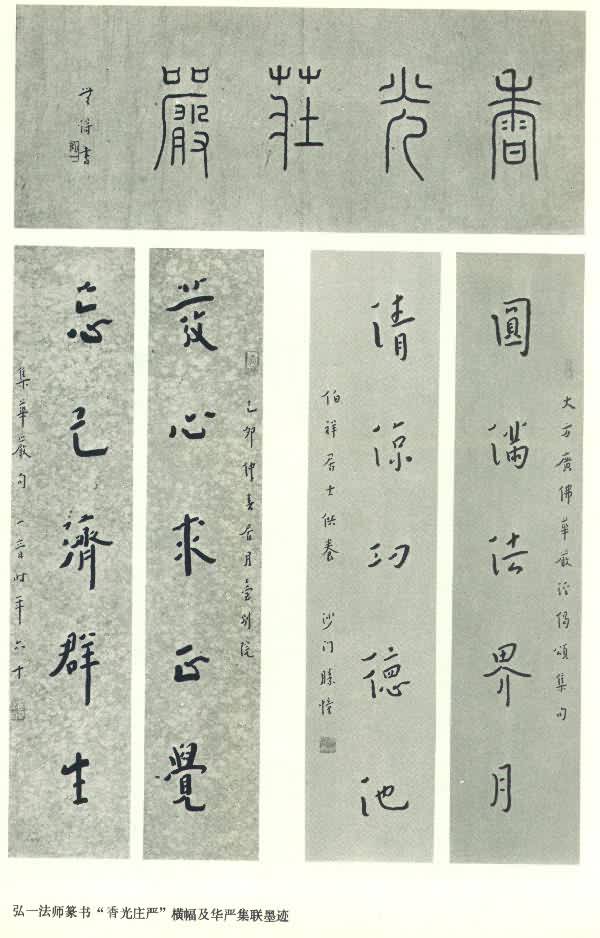 香光莊嚴
無得書
大方廣佛華嚴經偈頌集句
圓滿法界月
清涼功德池
伯祥居士供養 沙門勝幢
己卯仲春居月臺別院
發心求正覺
忘己濟群生
集華嚴句 一音時年六十
弘一法师篆书“香光庄严”横幅及华严集联墨迹